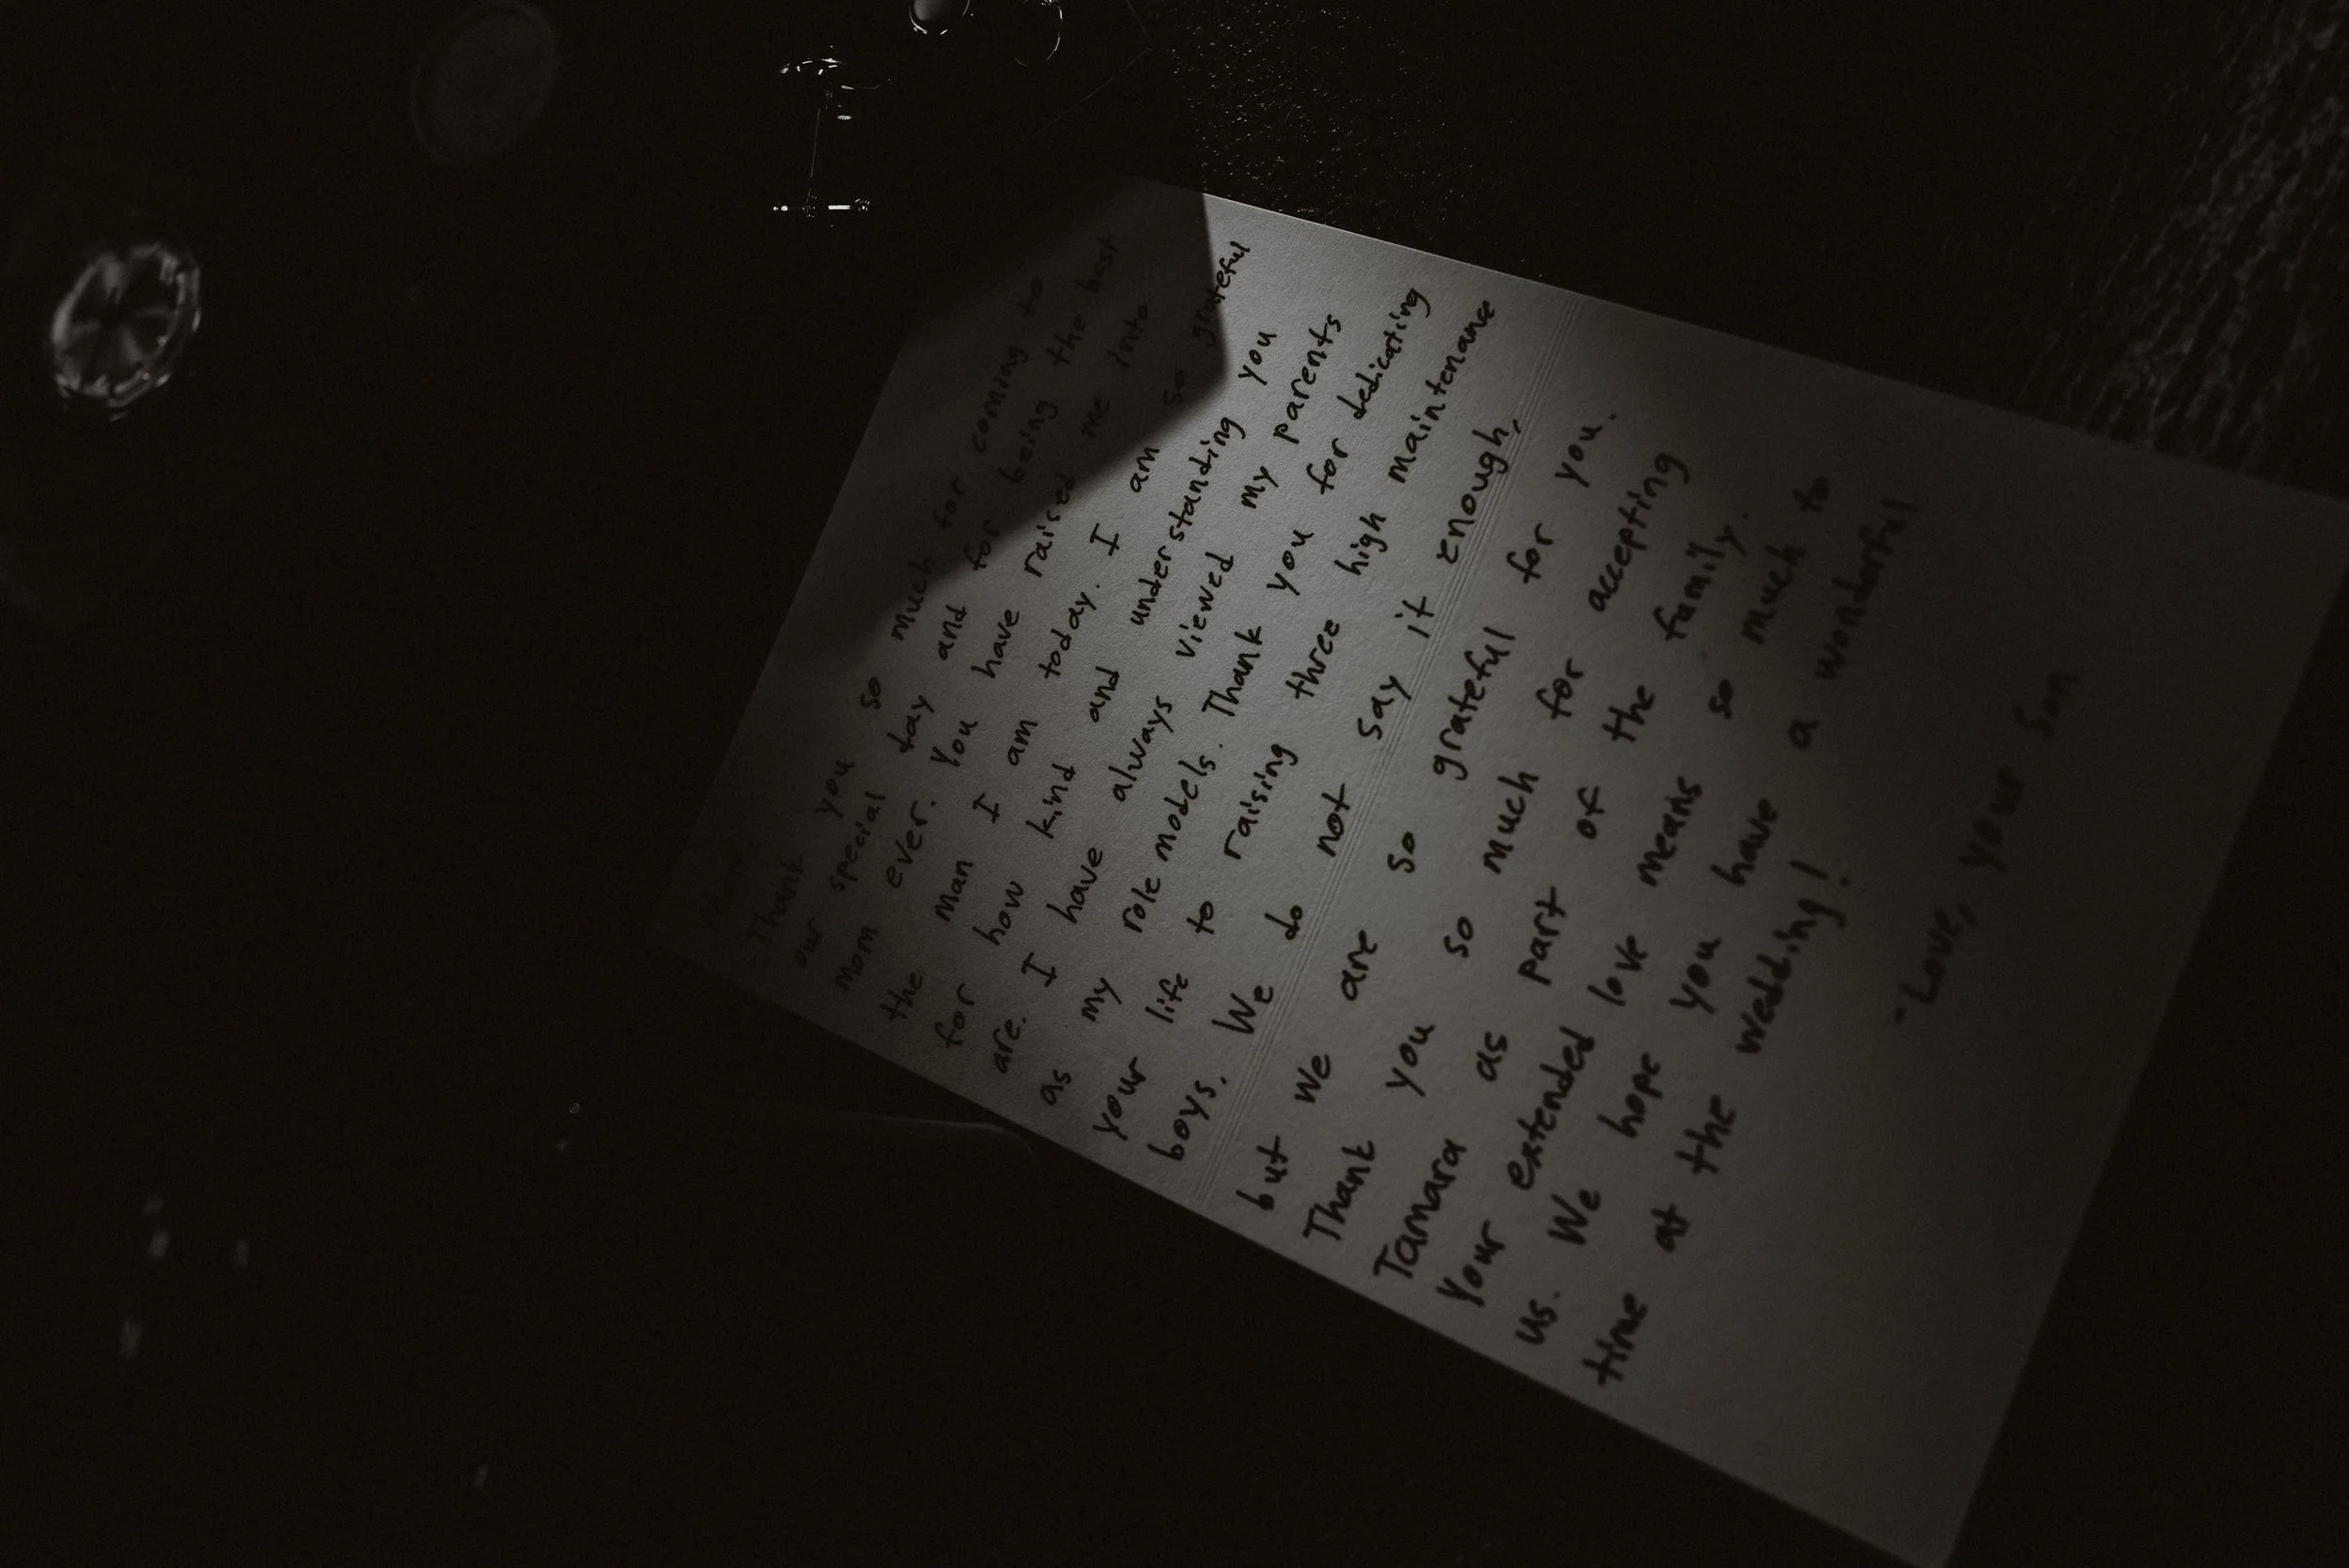 Thank you so much for coming to
our special day and for being the best
mom ever. You have raised me into
the man I am today. I am so grateful
for how kind and understanding you
are. I have always viewed my parents
as my role models. Thank you for dedicating
your life to raising three high maintenance
boys. We do not say it enough,
but we are so grateful for you.
Thank you so much for accepting
Tamara as part of the family.
Your extended love means so much to
us. We hope you have a wonderful
time at the wedding!
-Love, your son